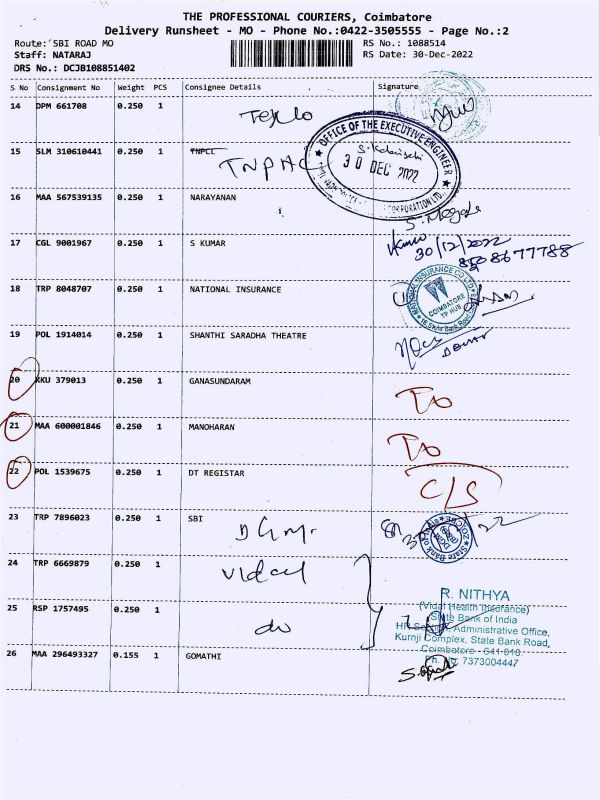 THE PROFESSIONAL COURIERS, Coimbatore
Delivery Runsheet - MO - Phone No.:0422-3505555 - Page No.:2
Route: SBI ROAD MO RS No.: 1088514
Staff: NATARAJ RS Date: 30-Dec-2022
DRS No.: DCJB108851402
S No Consignment No Weight PCS Consignee Details Signature
14 DPM 661708 0.250 1
15 SLM 310610441 0.250 1 TNPCL
OFFICE OF THE EXECUTIVE ENGINEER
30 DEC 2022
CORPORATION LTD.
16 MAA 567539135 0.250 1 NARAYANAN
17 CGL 9001967 0.250 1 S KUMAR
30/12/2022
8508677788
18 TRP 8048707 0.250 1 NATIONAL INSURANCE
NATIONAL INSURANCE CO LTD
COIMBATORE
TP HUB
19 POL 1914014 0.250 1 SHANTHI SARADHA THEATRE
20 KKU 379013 0.250 1 GANASUNDARAM
21 MAA 600001846 0.250 1 MANOHARAN
22 POL 1539675 0.250 1 DT REGISTAR C/S
23 TRP 7896023 0.250 1 SBI
State Bank of India
24 TRP 6669879 0.250 1 Vidal
R. NITHYA
(Vidal Health Insurance)
State Bank of India
25 RSP 1757495 0.250 1 do
Administrative Office,
Kurnji Complex, State Bank Road,
Coimbatore - 641 018
Ph. No: 7373004447
26 MAA 296493327 0.155 1 GOMATHI